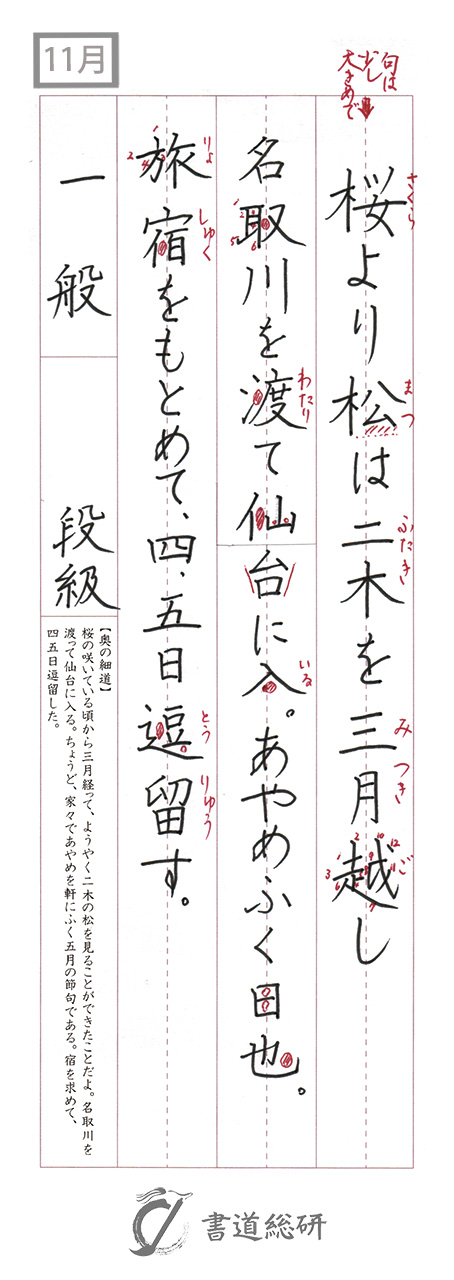 11月
句は
少し
大きめで
桜より松は二木を三月越し
さくら
まつ
ふたき
みつき
ご
名取川を渡て仙台に入。あやめふく日也。
わたり
いる
旅宿をもとめて、四、五日逗留す。
りょ
しゅく
とう
りゅう
一般
段級
【奥の細道】
桜の咲いている頃から三月経って、ようやく二木の松を見ることができたことだよ。名取川を
渡って仙台に入る。ちょうど、家々であやめを軒にふく五月の節句である。宿を求めて、
四五日逗留した。
書道総研